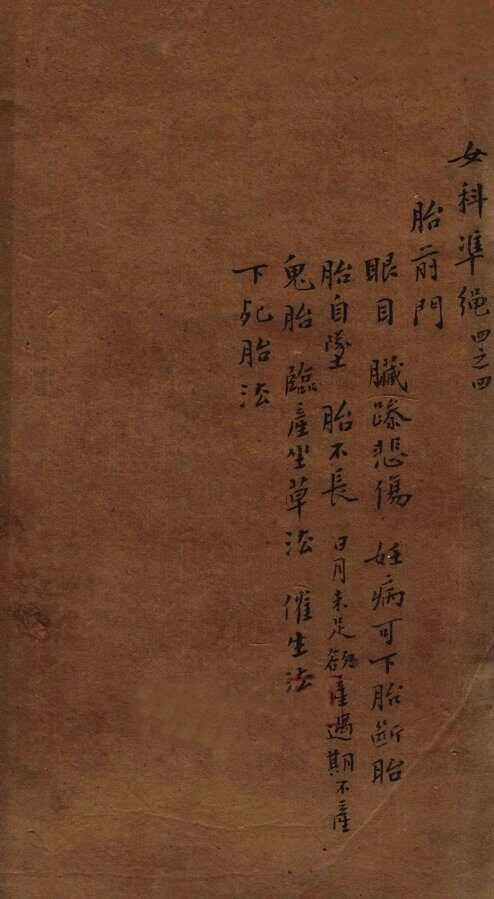 女科準繩四之四
胎前門
眼目 臓躁悲傷 妊病可下胎斷胎
胎自墜 胎不長 日月未足欲產過期不產
鬼胎 臨產坐草法 催生法
下死胎法